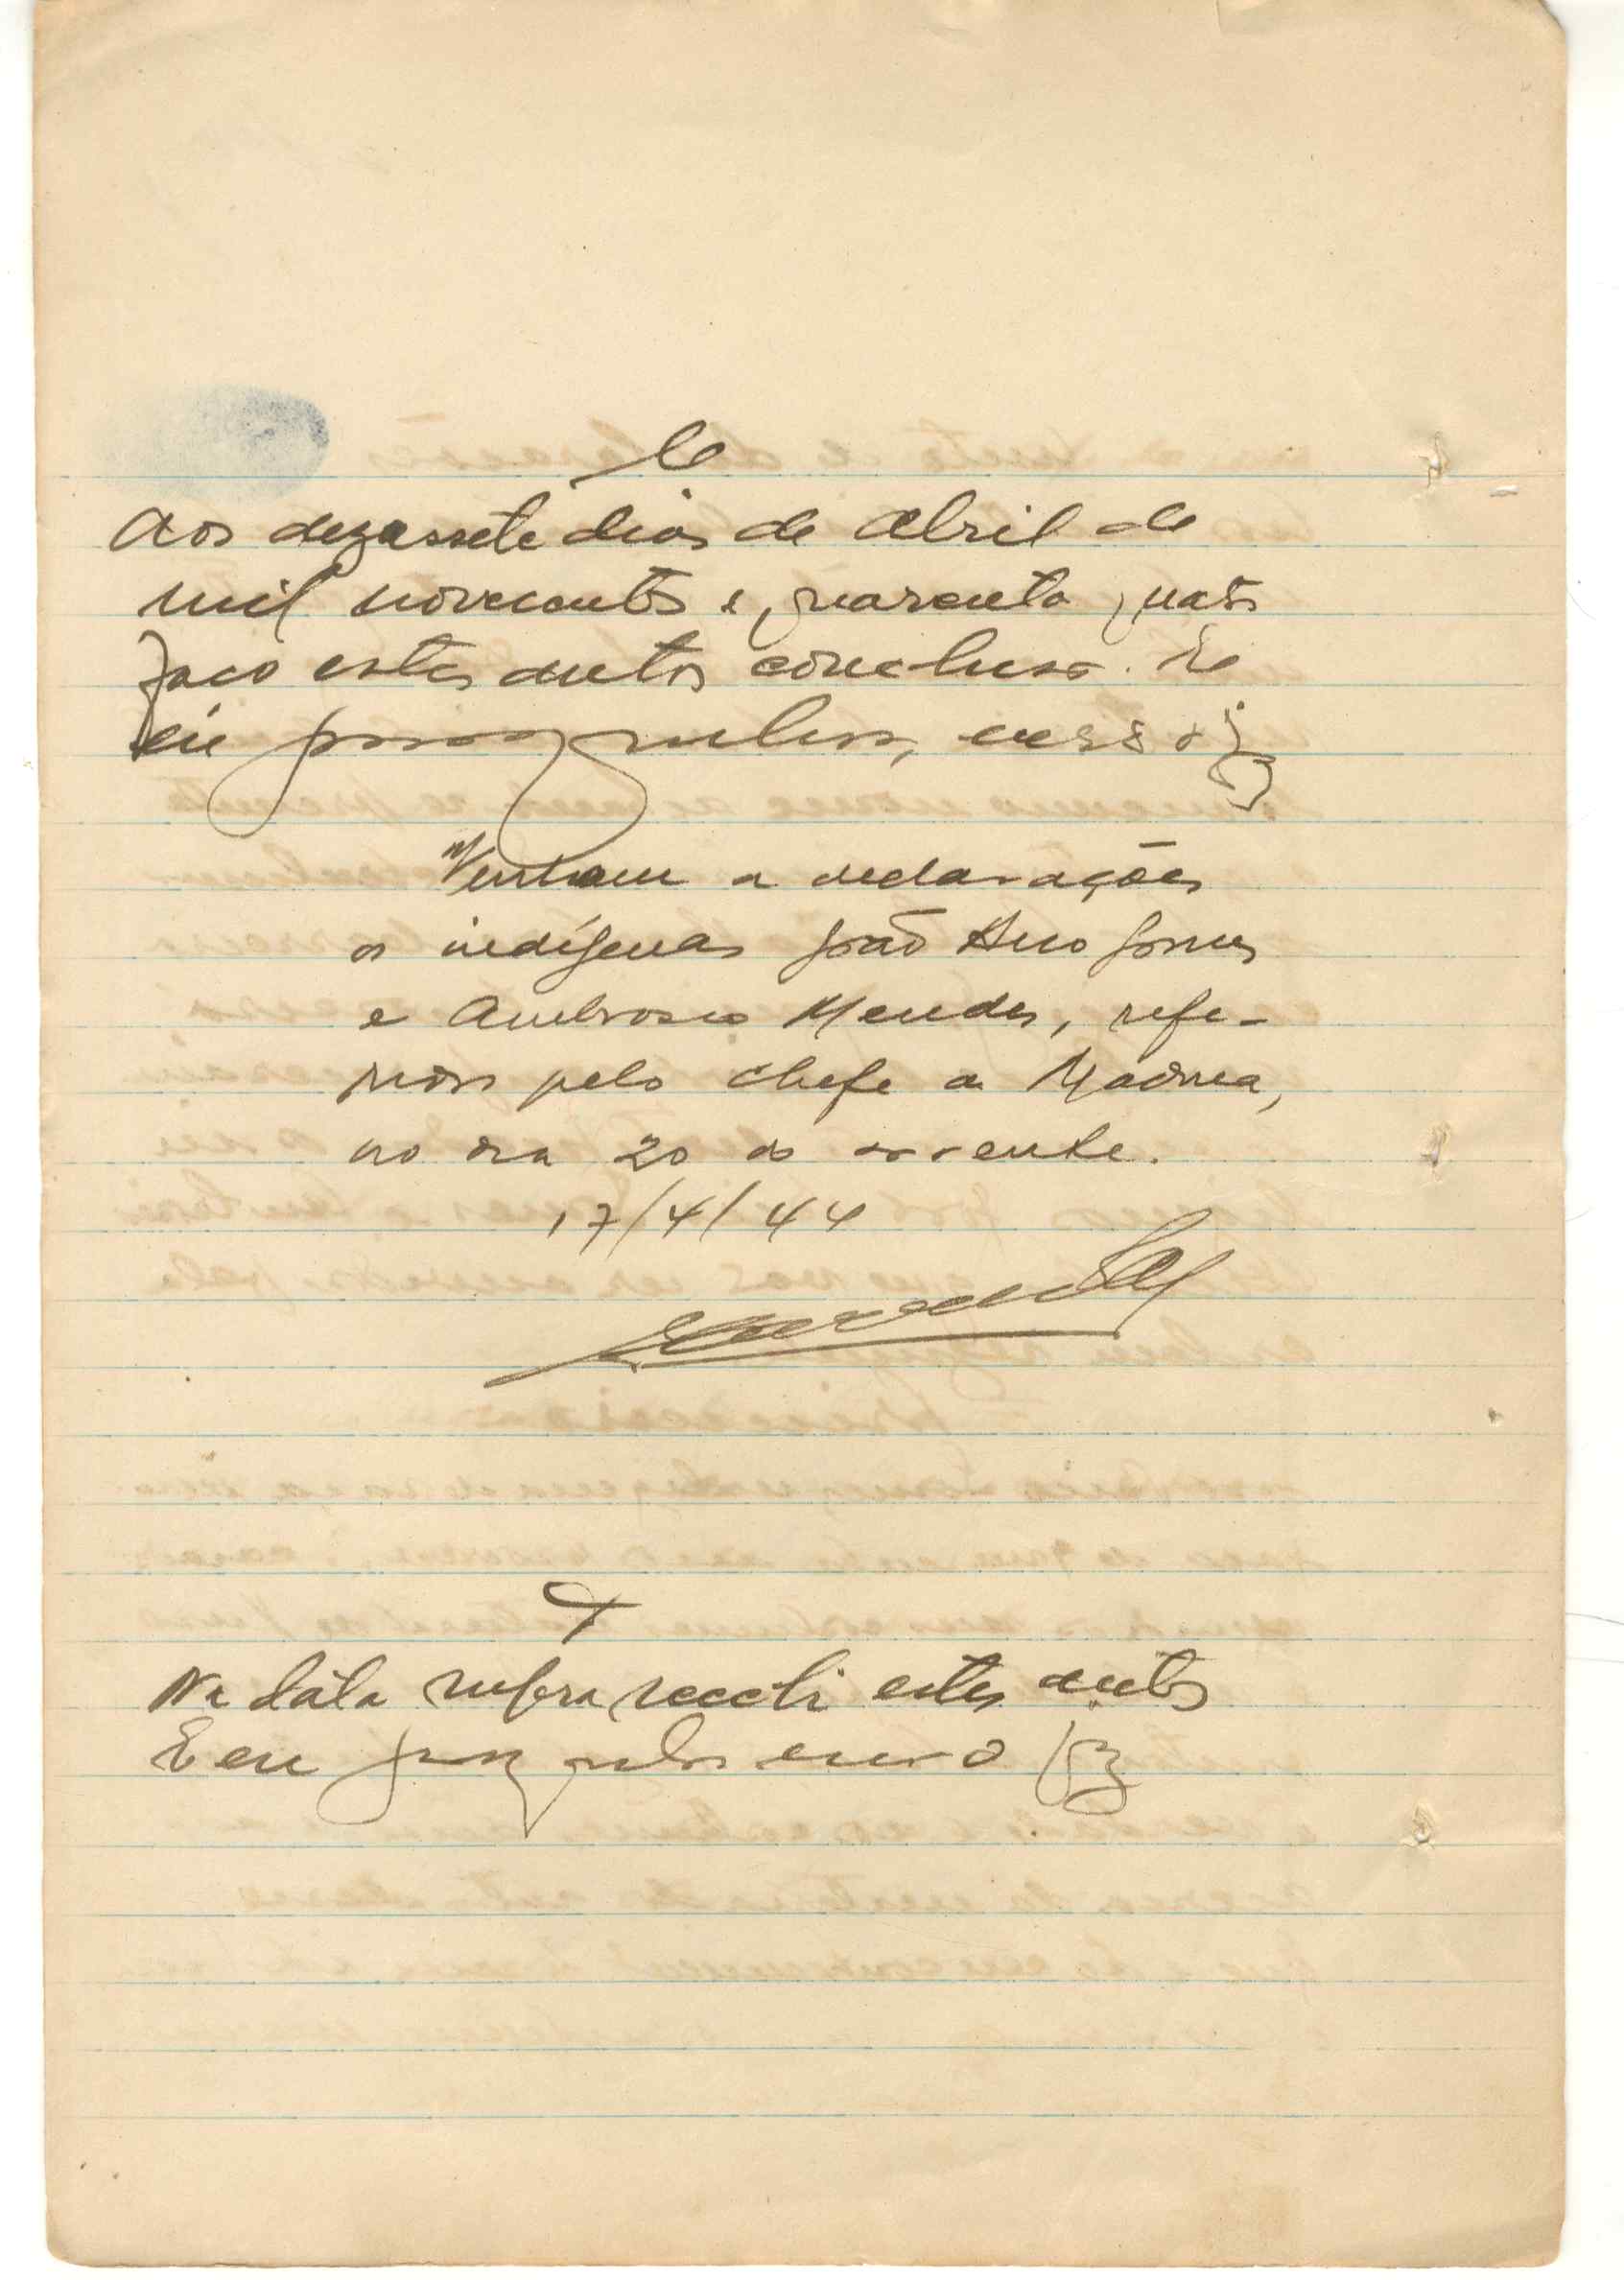 Aos dezassete dias de Abril de
mil novecentos e quarenta quatro
faço estes autos conclusos. E
eu
Venham a declarações
os indígenas João Gomes
e Ambrosio Mendes, refe-
ridos pelo chefe a
no dia 20 do corrente.
17/4/44
Na data supra recebi estes autos
E eu